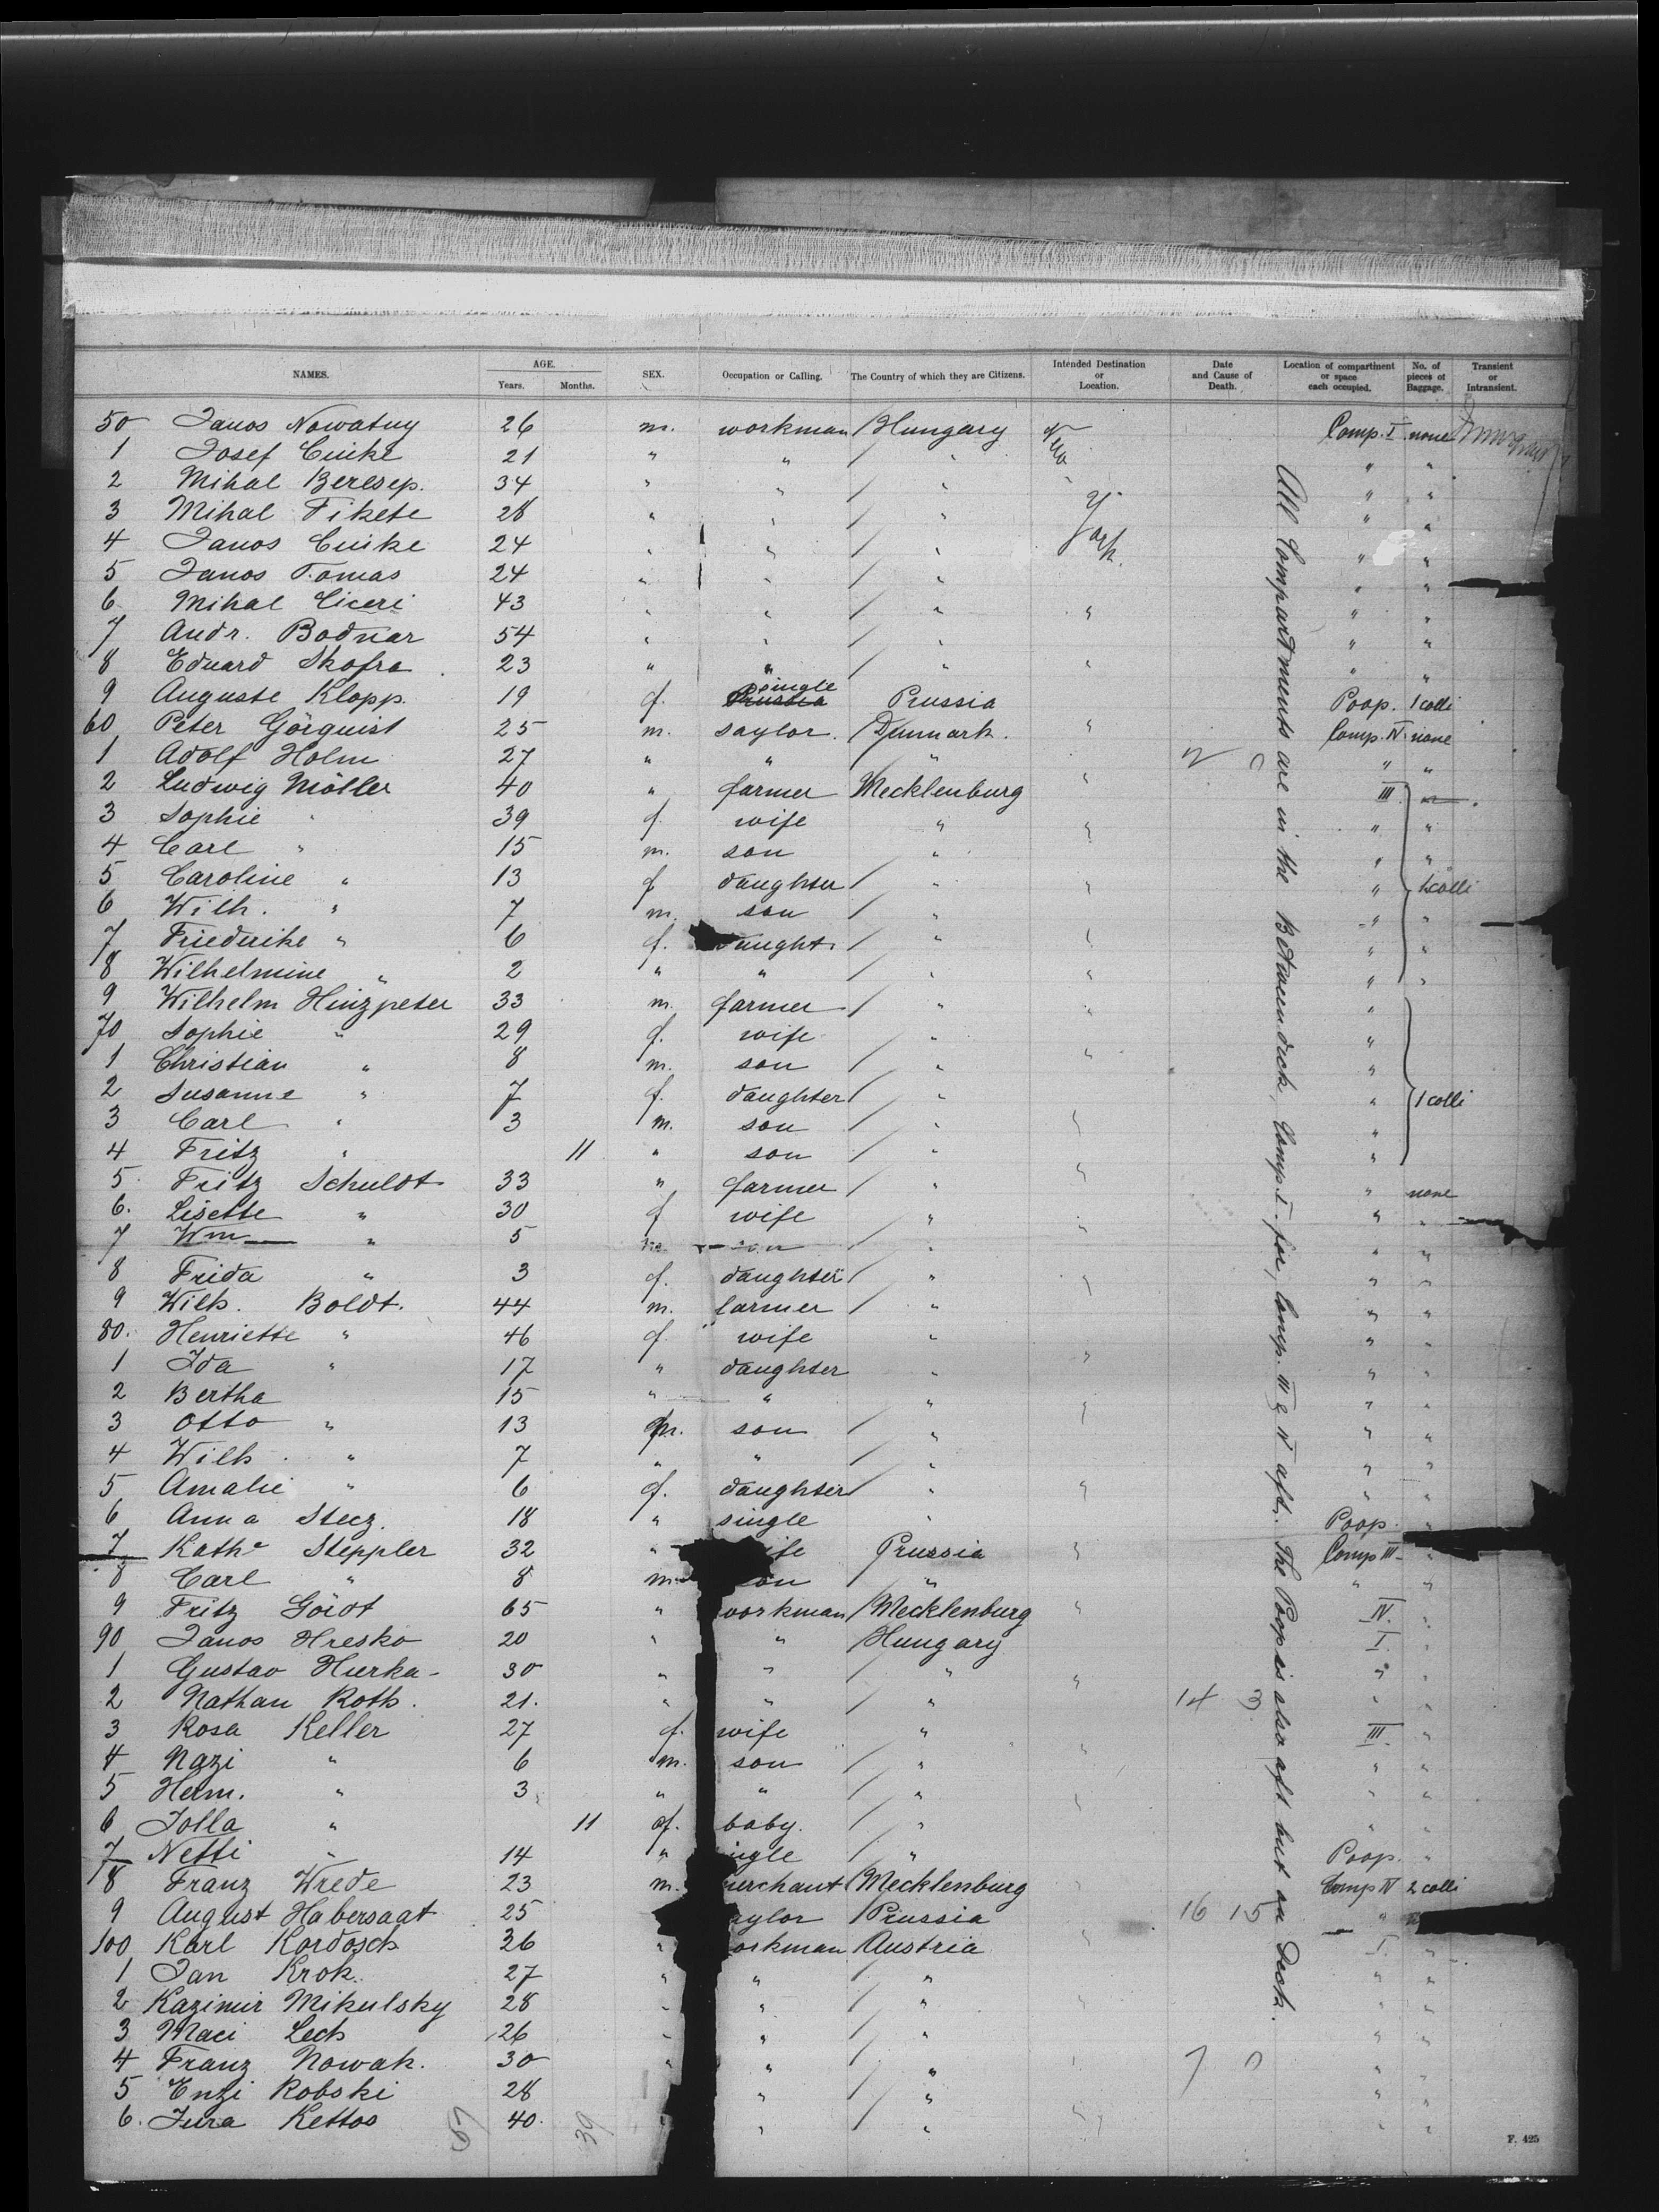 NAMES. AGE. Years. Months. SEX. Occupation or Calling. The Country of which they are Citizens. Intended Destination or Location. Date and Cause of Death. Location of compartment or space each occupied. No. of pieces of Baggage. Transient or Intransient.
50 Janos Nowatny 26 m. workman Hungary New Comp. I none
1 Josef Cuike 21 " " " " "
2 Mihal Beresep. 34 " " " " "
3 Mihal Fikete 28 " " " York. " "
4 Janos Cuike 24 " " " " "
5 Janos Tomas 24 " " " " "
6 Mihal Ciceri 43 " " " " " "
7 Andr. Bodnar 54 " " " " "
8 Eduard Skofra 23 " " " " " "
9 Auguste Klopp. 19 f. Prussia single Prussia Poop. 1 colli
60 Peter Görguist 25 m. saylor. Denmark. " Comp. IV. none
1 Adolf Holm 27 " " " " "
2 Ludwig Möller 40 " farmer Mecklenburg " III "
3 Sophie " 39 f. wife " " " "
4 Carl " 15 m. son " " "
5 Caroline " 13 f daughter " " " 1 colli
6 Wilh. " 7 m. son " " "
7 Friederike " 6 f. daught. " " " "
8 Wilhelmine " 2 " " " " " "
9 Wilhelm Hinzpeter 33 m. farmer " " "
70 Sophie " 29 f. wife " "
1 Christian " 8 m. son " " "
2 Susanne " 7 f. daughter " " 1 colli
3 Carl " 3 m. son " " "
4 Fritz " 11 " son " "
5 Fritz Schuldt 33 " farmer " " " none
6. Lisette " 30 f wife " " "
7 Wm " 5 m son " " " "
8 Frida " 3 f. daughter " " " "
9 Wilh. Boldt. 44 m. farmer " " "
80. Henriette " 46 f wife " " "
1 Ida " 17 " daughter " " " "
2 Bertha 15 " " " " "
3 Otto " 13 m. son " " " "
4 Wilh. " 7 " " " " "
5 Amalie " 6 f. daughter " " " "
6 Anna Stecz. 18 " single " Poop. "
7 Kathe Steppler 32 " wife Prussia " Comp III "
8 Carl " 8 m. son " " "
9 Fritz Goidt 65 " workman Mecklenburg " IV. "
90 Janos Hresko 20 " " Hungary I. "
1 Gustav Hurka 30 " " " " " "
2 Nathan Roth. 21. " " " 14 3 " "
3 Rosa Keller 27 f. wife " III. "
4 Nazi " 6 m. son " " " "
5 Herm. " 3 " " " " " "
6 Jolla " 11 f. baby. " " "
7 Netti " 14 " ingle " Poop. "
8 Franz Wrede 23 m. merchant Mecklenburg " Comp IV 2 colli
9 August Habersaat 25 aylor Prussia 16 15 "
100 Karl Kordosch 26 " orkman Austria " I. "
1 Jan Krok. 27 " " " " "
2 Kazimir Mikulsky 28 " " " " " "
3 Maci Lech 26 " " " " "
4 Franz Nowak. 30 " " " " "
5 Enzi Robski 28 " " " "
6. Jura Kettos 40. " " " " "
All Compartments are in the Betweendeck, Comp. I. for, Comp. III & IV aft. The Poop is also aft but on Deck.
F. 425